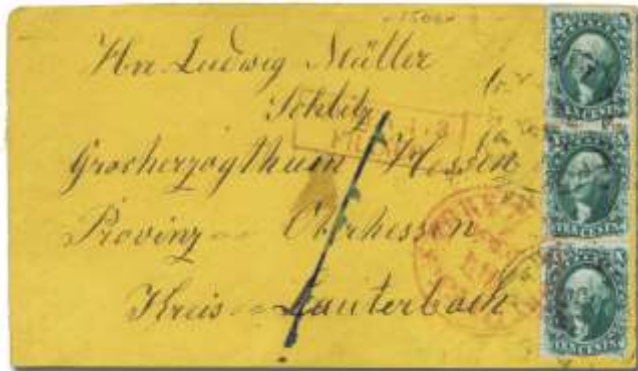 1500
Hrn Ludwig Müller
Schlitz
Grosherzogthum Hessen
Provinz Oberhessen
Kreis Lauterbach
TEN CENTS
TEN CENTS
TEN CENTS